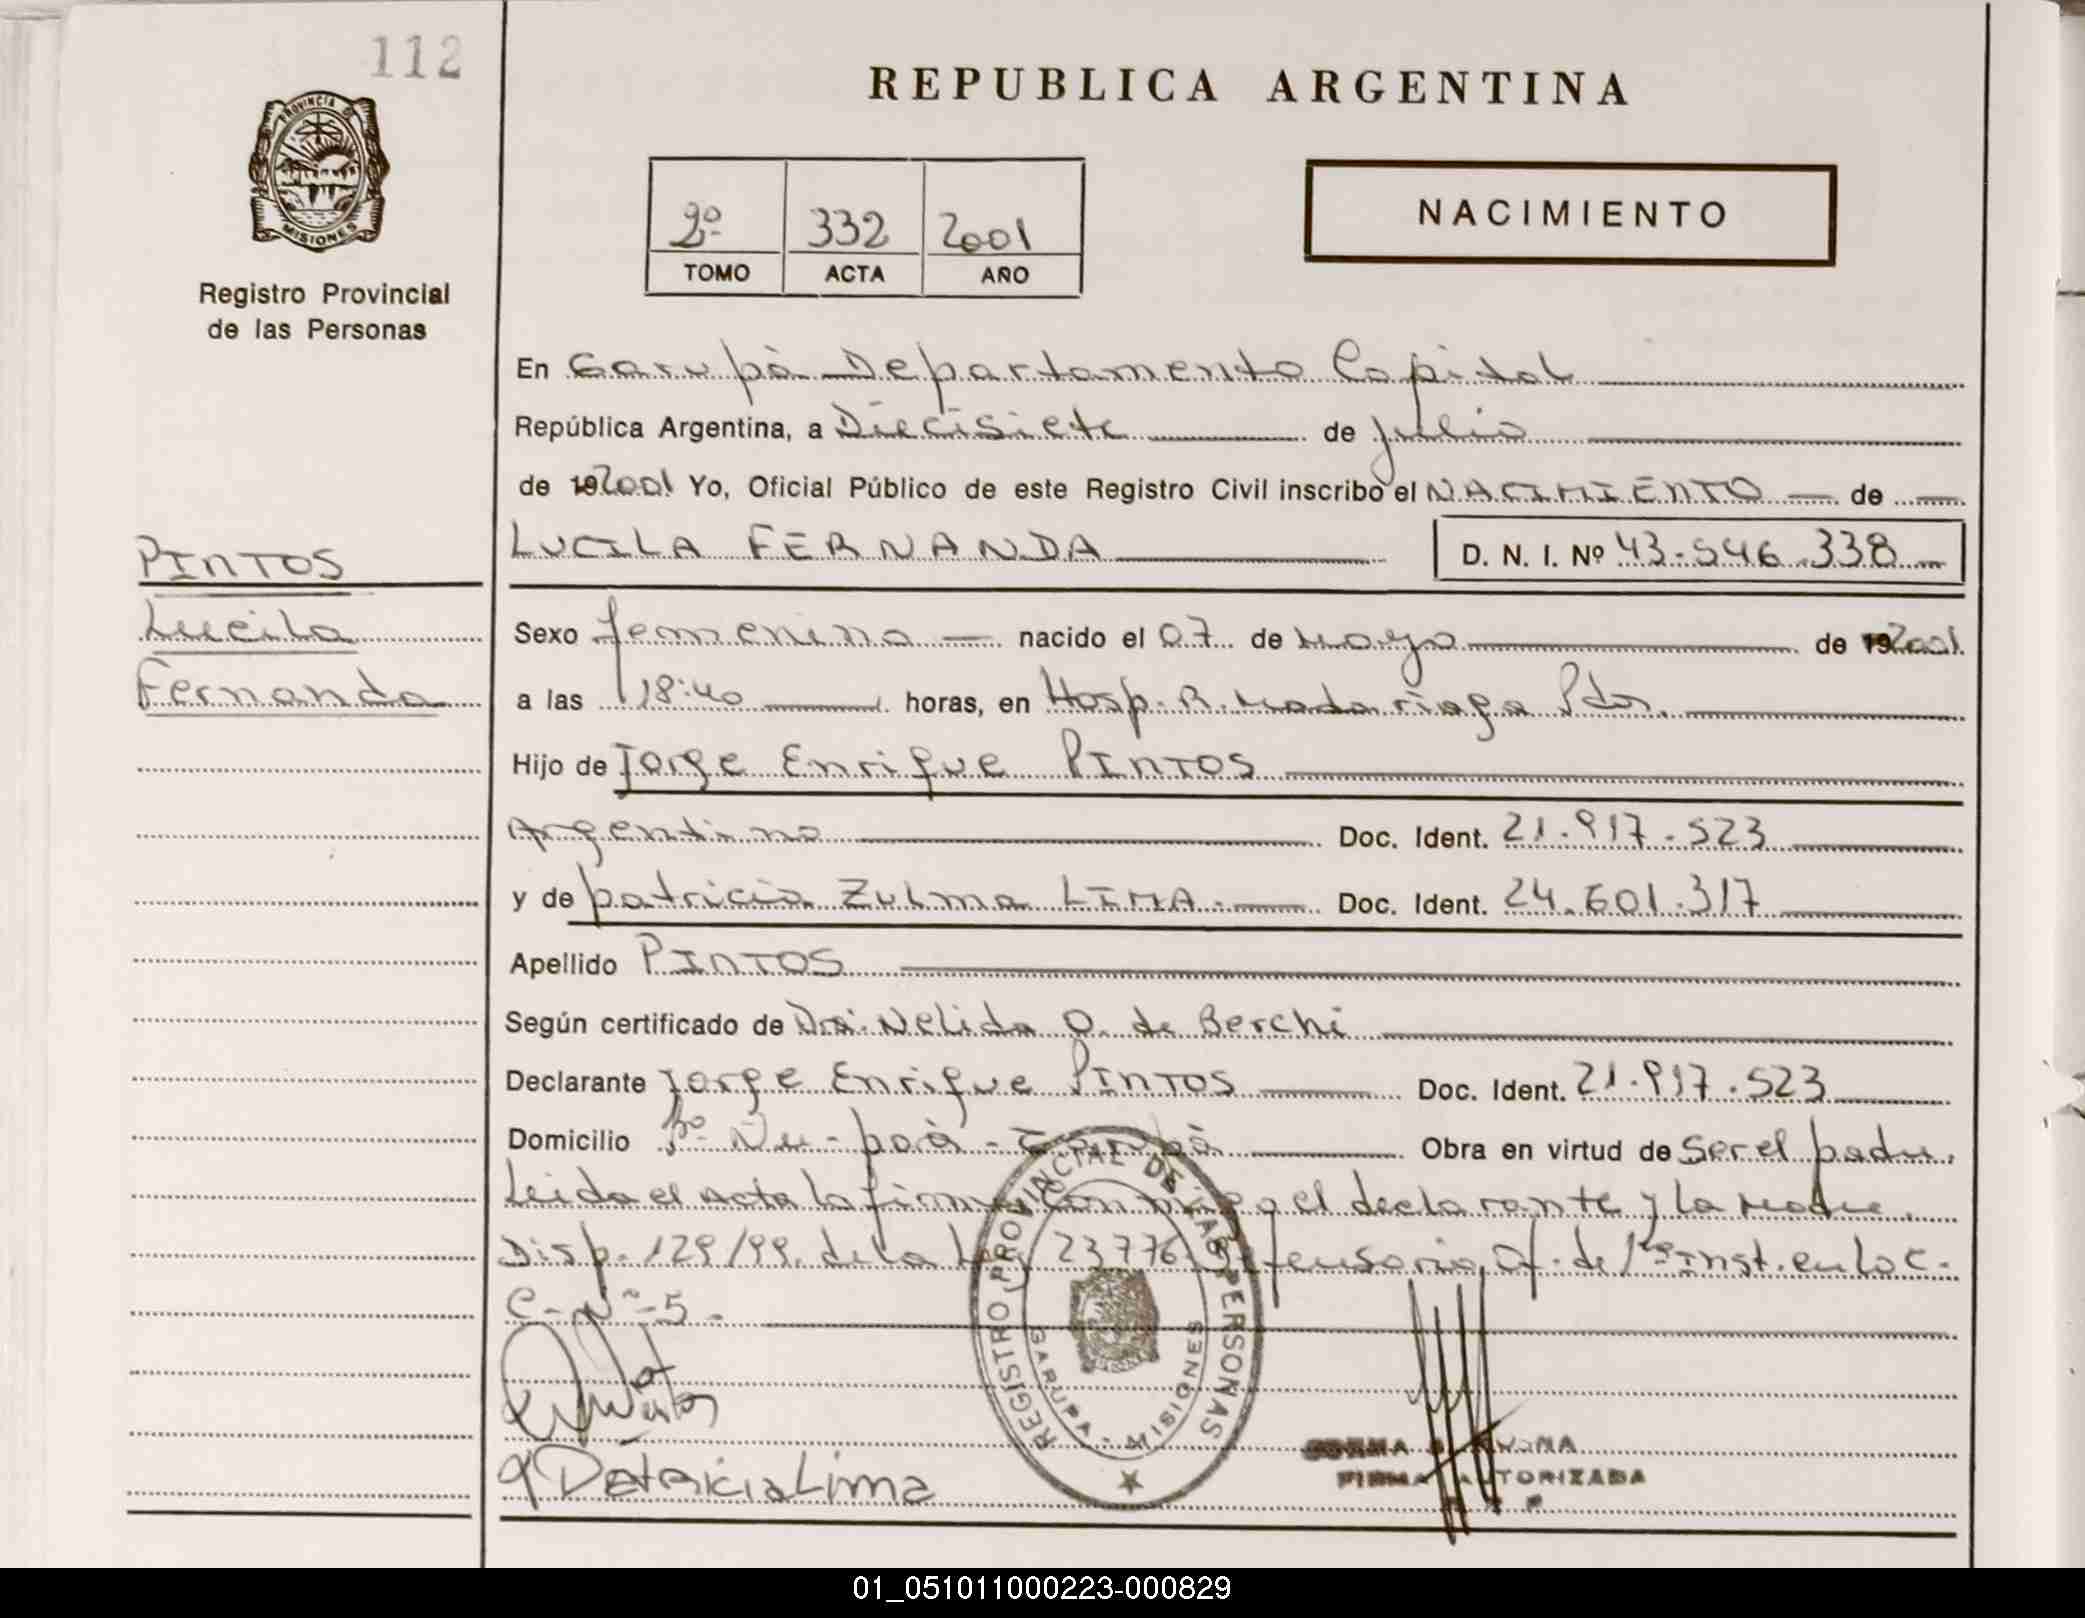 112
PROVINCIA DE
MISIONES
Registro Provincial
de las Personas
REPUBLICA ARGENTINA
2º 332 2001
TOMO ACTA AÑO
NACIMIENTO
En Garupà Departamento Capital
República Argentina, a Diecisiete de julio
de 192001 Yo, Oficial Público de este Registro Civil inscribo el NACIMIENTO de
LUCILA FERNANDA D. N. I. Nº 43.546.338
PINTOS
Lucila
Fernanda
Sexo femenino nacido el 07 de mayo de 192001
a las 18:40 horas, en Hosp. R. Madariaga Pdas.
Hijo de Jorge Enrique PINTOS
Argentino Doc. Ident. 21.917.523
y de patricia Zulma LIMA. Doc. Ident. 24.601.317
Apellido PINTOS
Según certificado de Dra. Nelida O. de Berchi
Declarante Jorge Enrique PINTOS Doc. Ident. 21.917.523
Domicilio Bº Ñu-porà - Garupà Obra en virtud de ser el padre.
Leida el Acta la firma con migo el declarante y la Madre.
Disp. 129/99. de la Ley 23776. Defensoria Of. de 1ª Inst. en lo C.
C. Nº-5.
REGISTRO PROVINCIAL DE LAS PERSONAS
GARUPA - MISIONES
Patricia Lima
FIRMA AUTORIZADA
01_051011000223-000829